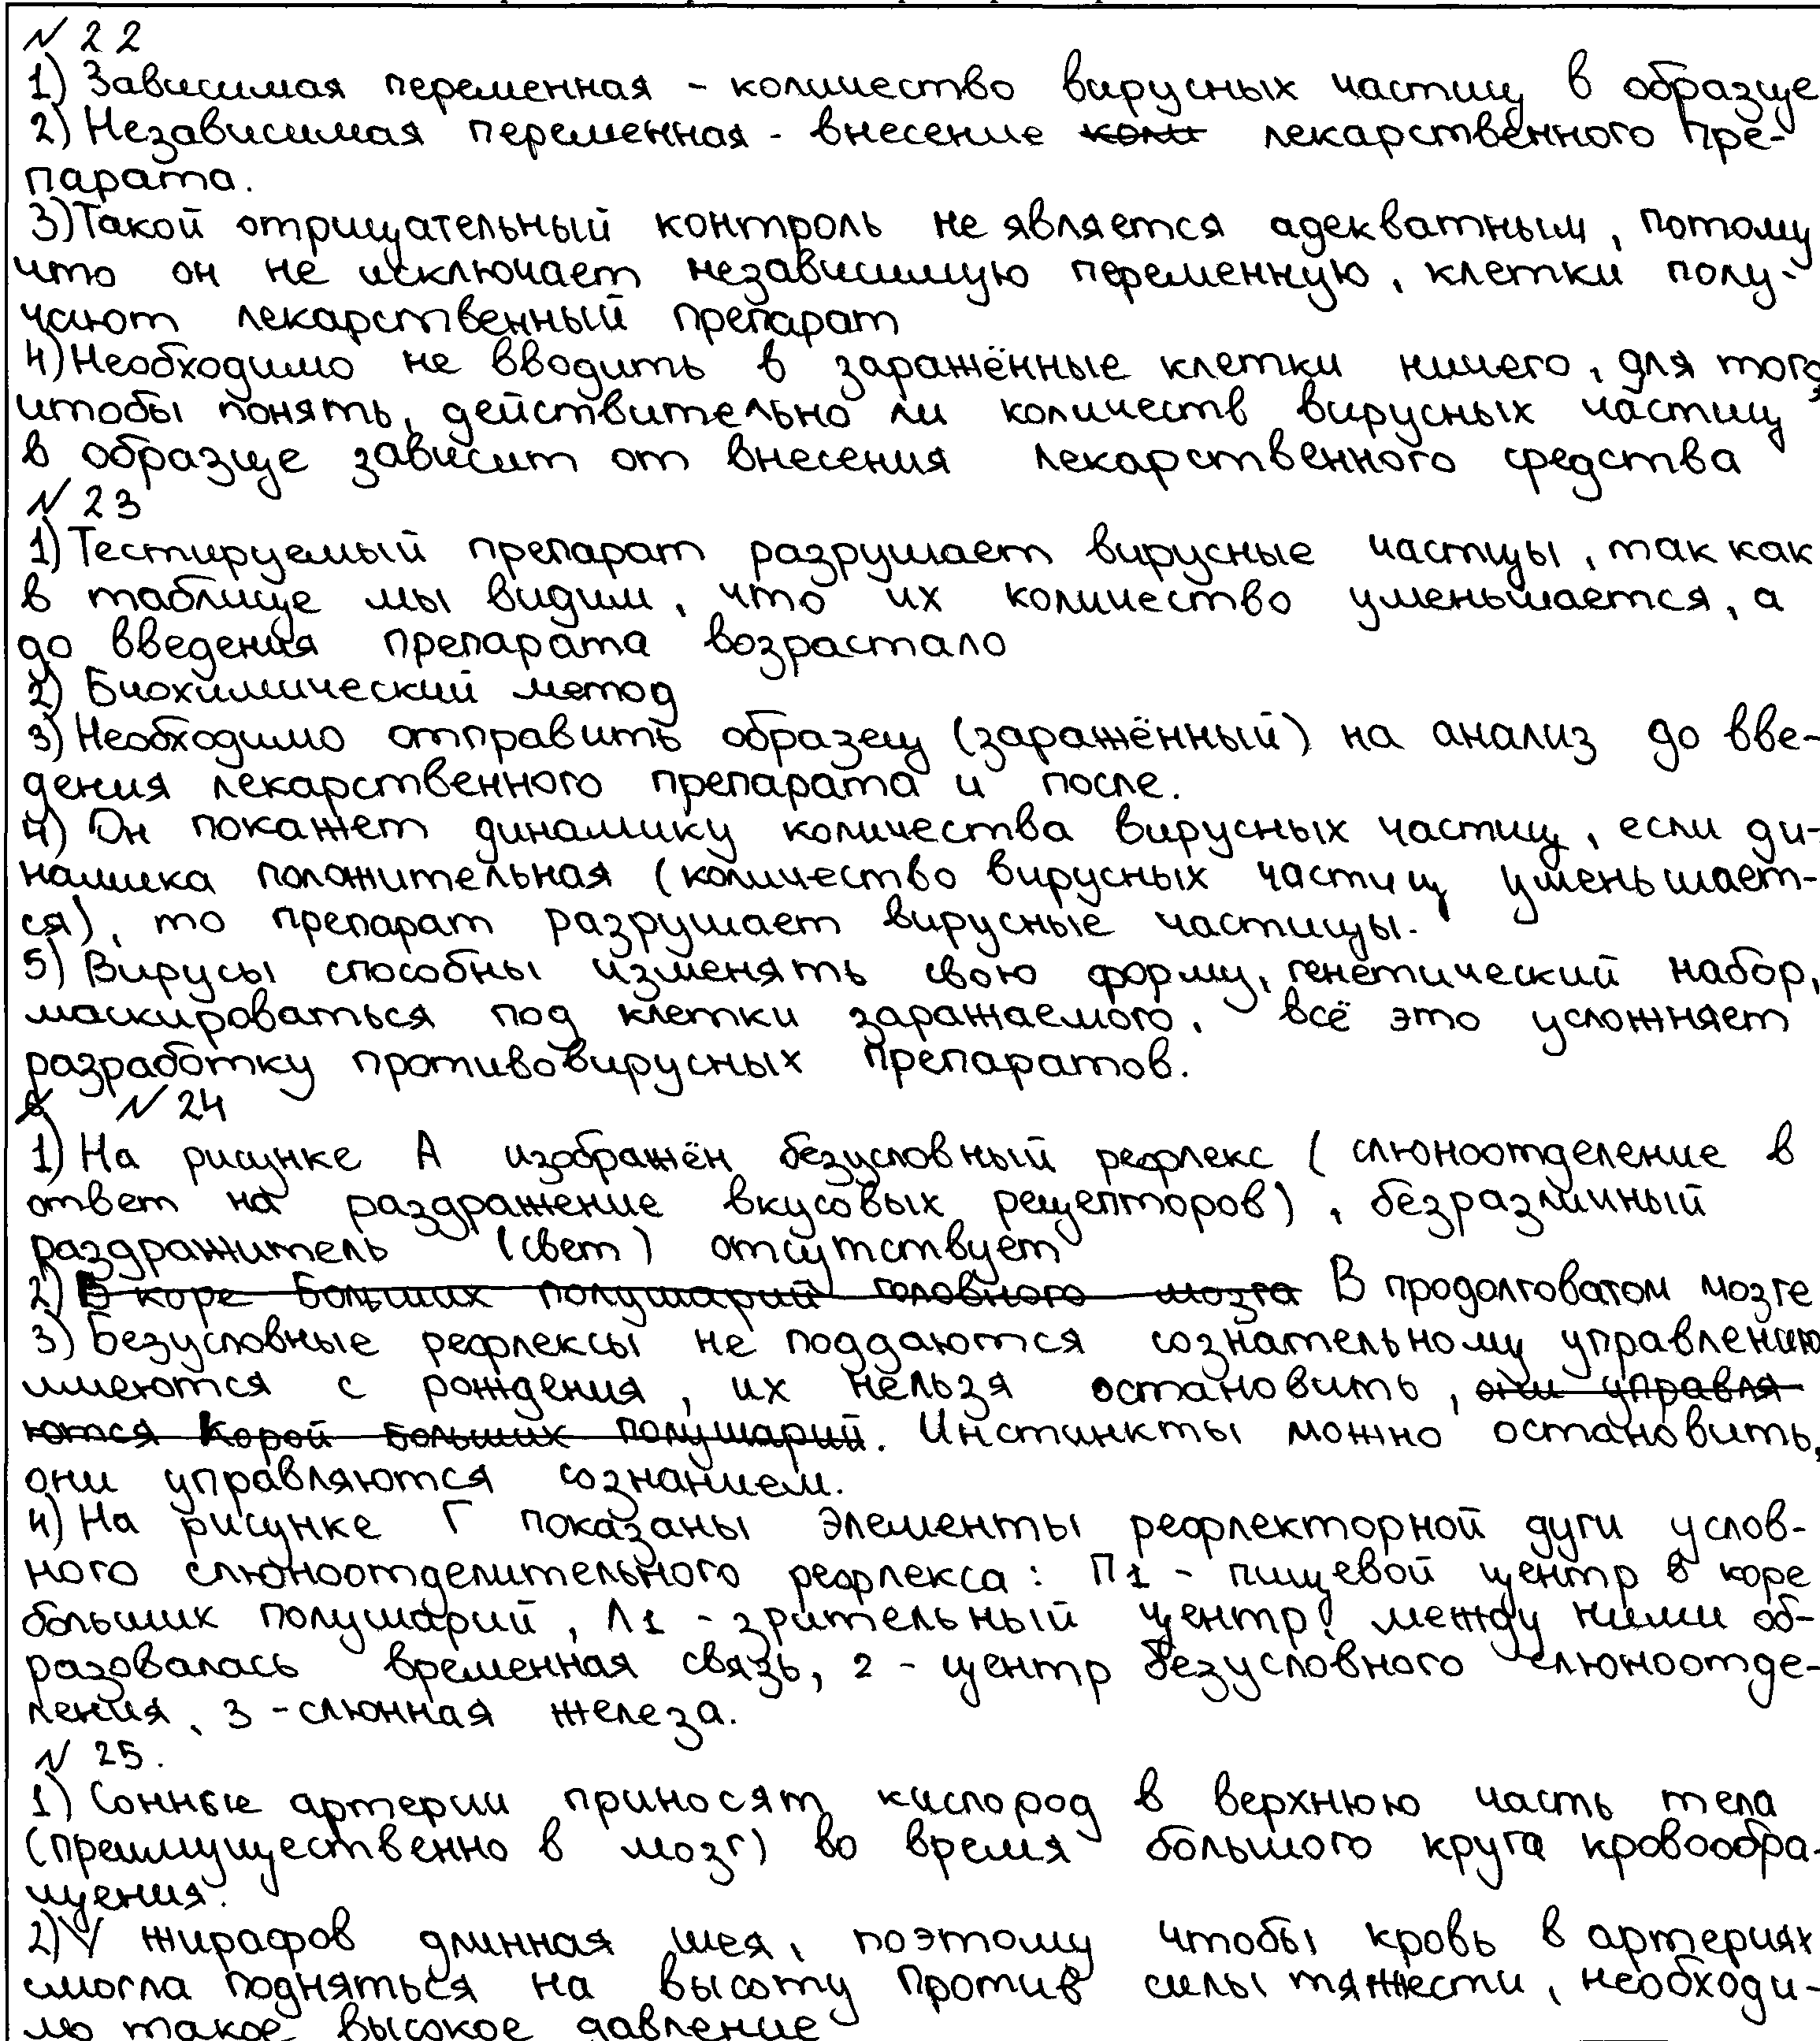 № 22
1) Зависимая переменная - количество вирусных частиц в образце
2) Независимая переменная - внесение коли лекарственного пре-
парата.
3) Такой отрицательный контроль не является адекватным, потому
что он не исключает независимую переменную, клетки полу-
чают лекарственный препарат
4) Необходимо не вводить в заражённые клетки ничего, для того,
чтобы понять, действительно ли количеств вирусных частиц
в образце зависит от внесения лекарственного средства
№ 23
1) Тестируемый препарат разрушает вирусные частцы, так как
в таблице мы видим, что их количество уменьшается, а
до введения препарата возрастало
2) Биохимический метод
3) Необходимо отправить образец (заражённый) на анализ до вве-
дения лекарственного препарата и после.
4) Он покажет динамику количества вирусных частиц, если ди-
намика положительная (количество вирусных частиц уменьшает-
ся), то препарат разрушает вирусные частицы.
5) Вирусы способны изменять свою форму, генетический набор,
маскироваться под клетки заражаемого, всё это усложняет
разработку противовирусных препаратов.
№ 24
1) На рисунке А изображён безусловный рефлекс (слюноотделение в
ответ на раздражение вкусовых рецепторов), безразличный
раздражитель (свет) отсутствует
2) В коре больших полушарий головного мозга В продолговатом мозге
3) Безусловные рефлексы не поддаются сознательному управлению
имеются с рождения, их нельзя остановить, они управля-
ются корой больших полушарий. Инстинкты можно остановить,
они управляются сознанием.
4) На рисунке Г показаны элементы рефлекторной дуги услов-
ного слюноотделительного рефлекса: П1 - пищевой центр в коре
больших полушарий, Л1 - зрительный центр, между ними об-
разовалась временная связь, 2 - центр безусловного слюноотде-
ления, 3 - слюнная железа.
№ 25.
1) Сонные артерии приносят кислород в верхнюю часть тела
(преимущественно в мозг) во время большого круга кровообра-
щения.
2) У жирафов длинная шея, поэтому чтобы кровь в артериях
смогла подняться на высоту против силы тяжести, необходи-
мо такое высокое давление